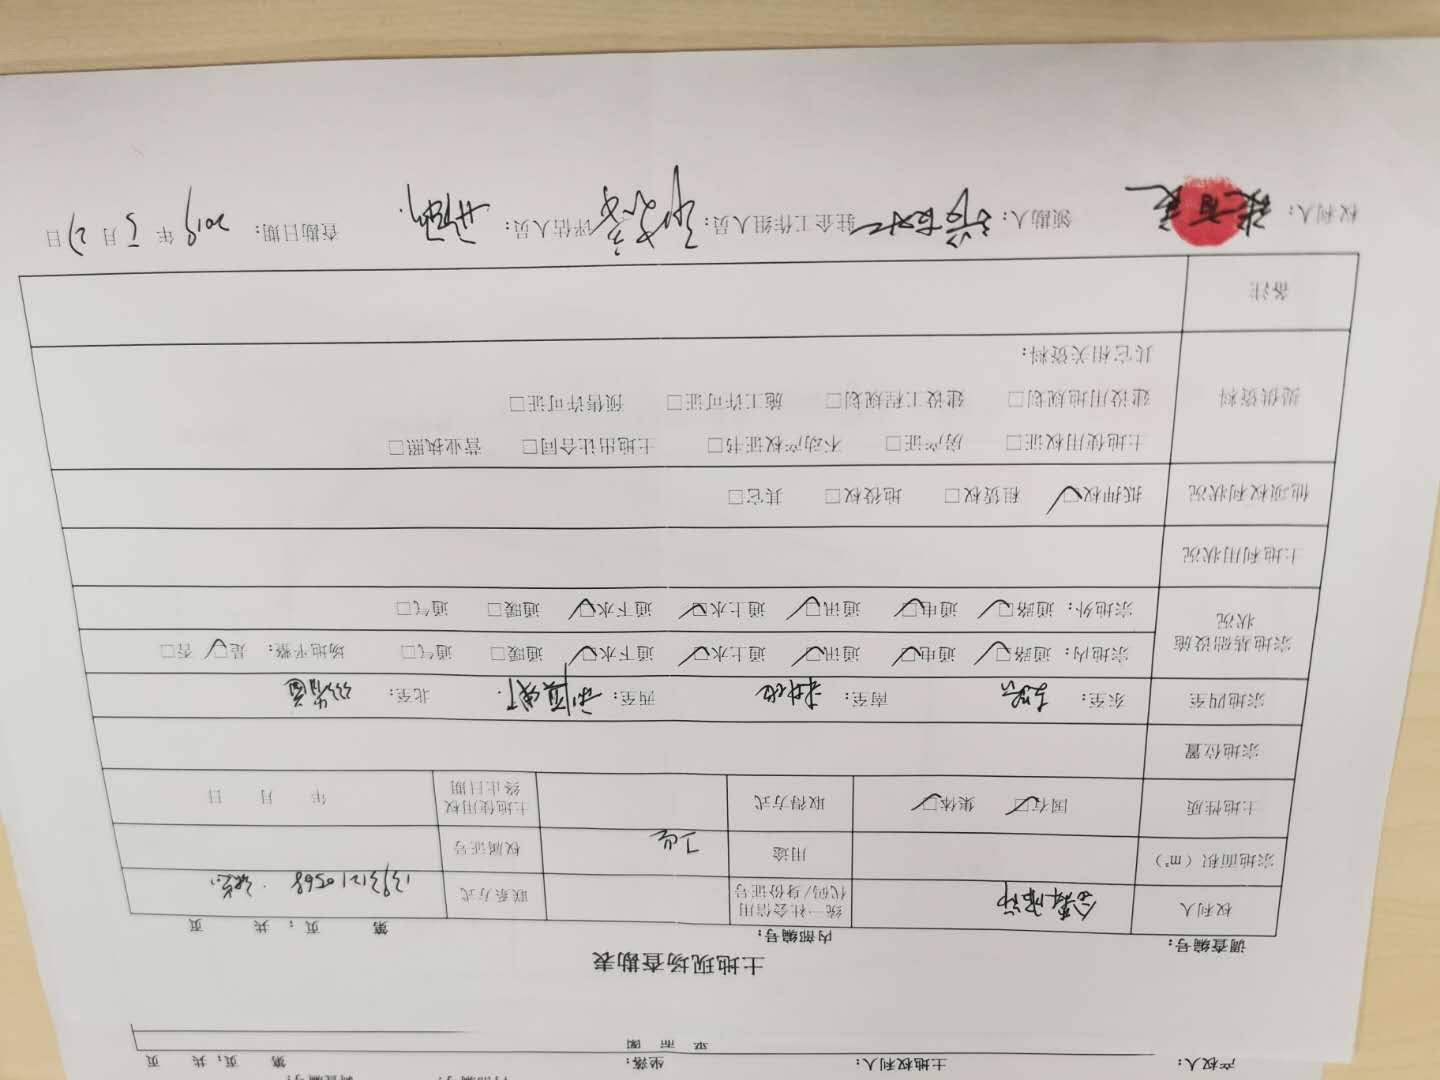 土地现场查勘表
调查编号： 内部编号： 第 页；共 页
权利人 统一社会信用代码/身份证号 联系方式 13931210568
宗地面积（m²） 用途 工业 权属证号
土地性质 国有☑ 集体☑ 取得方式 土地使用权终止日期 年 月 日
宗地位置
宗地四至 东至： 南至： 西至： 北至：
宗地基础设施状况 宗地内：通路☑ 通电☑ 通讯☑ 通上水☑ 通下水☑ 通暖□ 通气□ 场地平整：是☑ 否□
宗地外：通路☑ 通电☑ 通讯☑ 通上水☑ 通下水☑ 通暖□ 通气□
土地利用状况
他项权利状况 抵押权☑ 租赁权□ 地役权□ 其它□
提供资料 土地使用权证□ 房产证□ 不动产权证书□ 土地出让合同□ 营业执照□
建设用地规划□ 建设工程规划□ 施工许可证□ 预售许可证□
其它相关资料：
备注
权利人： 领勘人： 驻企工作组人员： 评估人员： 查勘日期：2019 年 5 月 21 日
产权人： 土地权利人： 坐落： 第 页；共 页
平面图